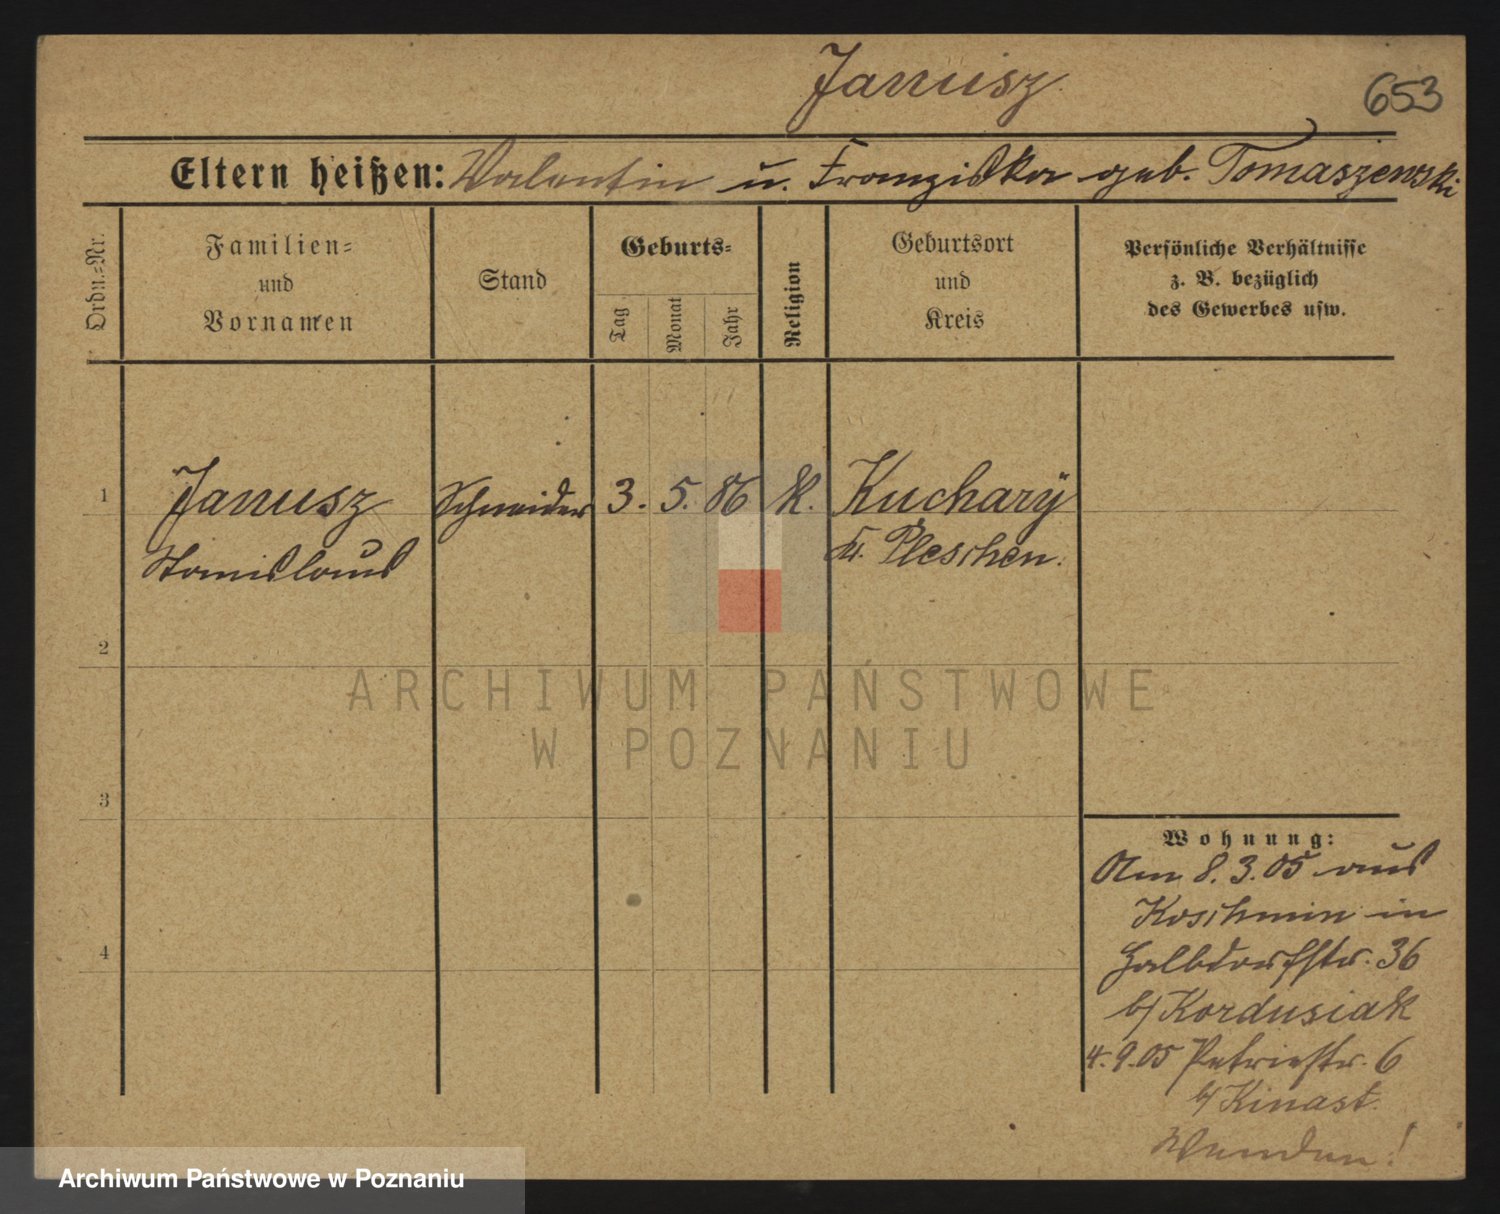 Janusz
653
Eltern heißen: Valentin u. Franziska geb. Tomaszewski
Ordn.=Nr.
Familien=
und
Vornamen
Stand
Geburts=
Tag
Monat
Jahr
Religion
Geburtsort
und
Kreis
Persönliche Verhältnisse
z. B. bezüglich
des Gewerbes usw.
1 Janusz Schneider 3. 5. 86 K. Kuchary
Stanislaus Kr. Pleschen.
2
ARCHIWUM PAŃSTWOWE
W POZNANIU
3
Wohnung:
Am 8.3.05 aus
Koschmin in
4 Halbdorfstr. 36
b/ Kordusiak
4.9.05 Petristr. 6
b/ Kinast
Wenden!
Archiwum Państwowe w Poznaniu